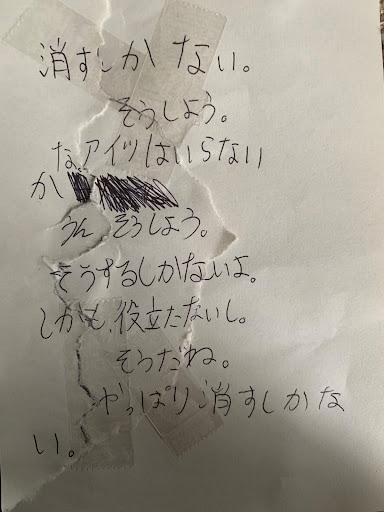 消すしかない。
そうしよう。
な、アイツはいらない
か
うん そうしよう。
そうするしかないよ。
しかも、役立たないし。
そうだね。
やっぱり消すしかな
い。